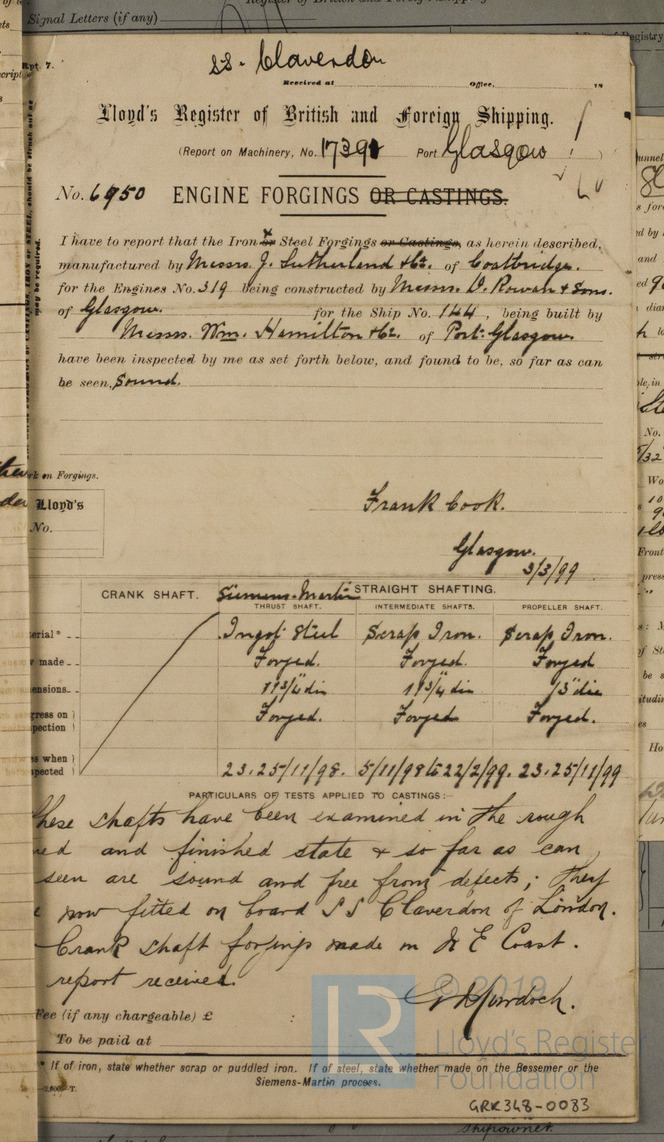 Signal Letters (if any)
of Registry
Rpt. 7.
SS. Claverdon
Received at Office, 18
Lloyd's Register of British and Foreign Shipping.
(Report on Machinery, No. 17391 Port Glasgow
No. 6950 ENGINE FORGINGS OR CASTINGS.
I have to report that the Iron or Steel Forgings or Castings, as herein described,
manufactured by Messrs. J. Sutherland & Co. of Coatbridge.
for the Engines No. 319 being constructed by Messrs. D. Rowan & Sons.
of Glasgow. for the Ship No. 144, being built by
Messrs. Wm. Hamilton & Co. of Port-Glasgow.
have been inspected by me as set forth below, and found to be, so far as can
be seen, Sound.
rk on Forgings.
Lloyd's
No.
Frank Cook.
Glasgow.
3/3/99
CRANK SHAFT. Siemens-Martin STRAIGHT SHAFTING.
THRUST SHAFT. INTERMEDIATE SHAFTS. PROPELLER SHAFT.
erial* Ingot Steel Scrap Iron. Scrap Iron.
made Forged. Forged. Forged
ensions 11 3/4" dia 11 3/4 dia 13" dia
gress on Forged. Forged Forged.
pection
s when
pected 23.25/11/98. 5/11/98 to 22/2/99. 23.25/11/99
PARTICULARS OF TESTS APPLIED TO CASTINGS:—
hese shafts have been examined in the rough
ed and finished state & so far as can
seen are sound and free from defects; They
now fitted on board SS Claverdon of London.
Crank shaft forgings made on N E Coast.
report received.
Murdoch.
Fee (if any chargeable) £ :
To be paid at
* If of iron, state whether scrap or puddled iron. If of steel, state whether made on the Bessemer or the
Siemens-Martin process.
© 2019
LR
Lloyd's Register
Foundation
GRK348-0083
shipowner